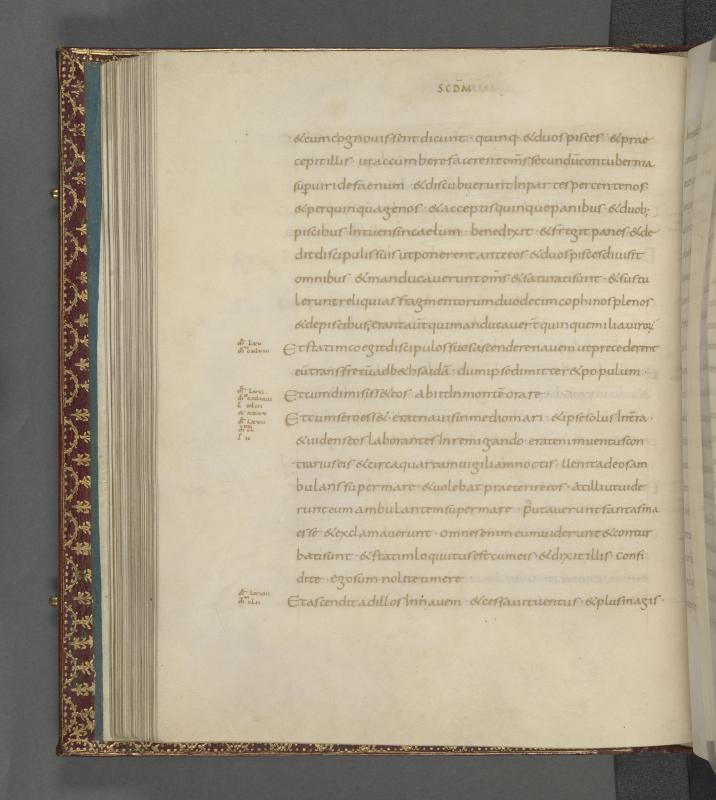 SCDM
& cum cognovissent dicunt · quinq & duos pisces · & prae
cepit illis ut accumbere facerent oms secundū contubernia
sup viride faenum · & discubuerunt In partes per centenos
& per quinquagenos · & acceptis quinque panibus & duob;
piscibus Intuens in caelum · benedixit & fregit panes & de
dit discipulis suis ut ponerent ante eos & duos pisces divisit
omnibus & manducaverunt oms & saturati sunt · & sustu
lerunt reliquias fragmentorum duodecim cophinos plenos
& de piscibus, erant aūt qui manducaver̄ quinque milia
Et statim coegit discipulos suos ascendere navem ut precederent
eū trans fretū ad bethsaidā · dum ipse dimitter& populum ·
Et cum dimisisset eos abiit In montē orare ·
Et cum sero ess& · erat navis in medio mari & ipse solus In t̄ra ·
& videns eos laborantes In remigando · erat enim ventus con
trarius eis & circa quartam vigiliam noctis ·
bulans sup mare · & volebat praeterire eos · at illi ut vide
runt eum ambulantem sup mare · putaverunt fantasma
esse & exclamaverunt · omnes enim eum viderunt & contur
bati sunt · & statim loquutus est cum eis & dixit illis · confi
dite · ego sum nolite timere
Et ascendit ad illos In navem · & cessavit ventus · & plus magis ·